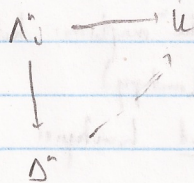 Λⁿⱼ → K
Δⁿ